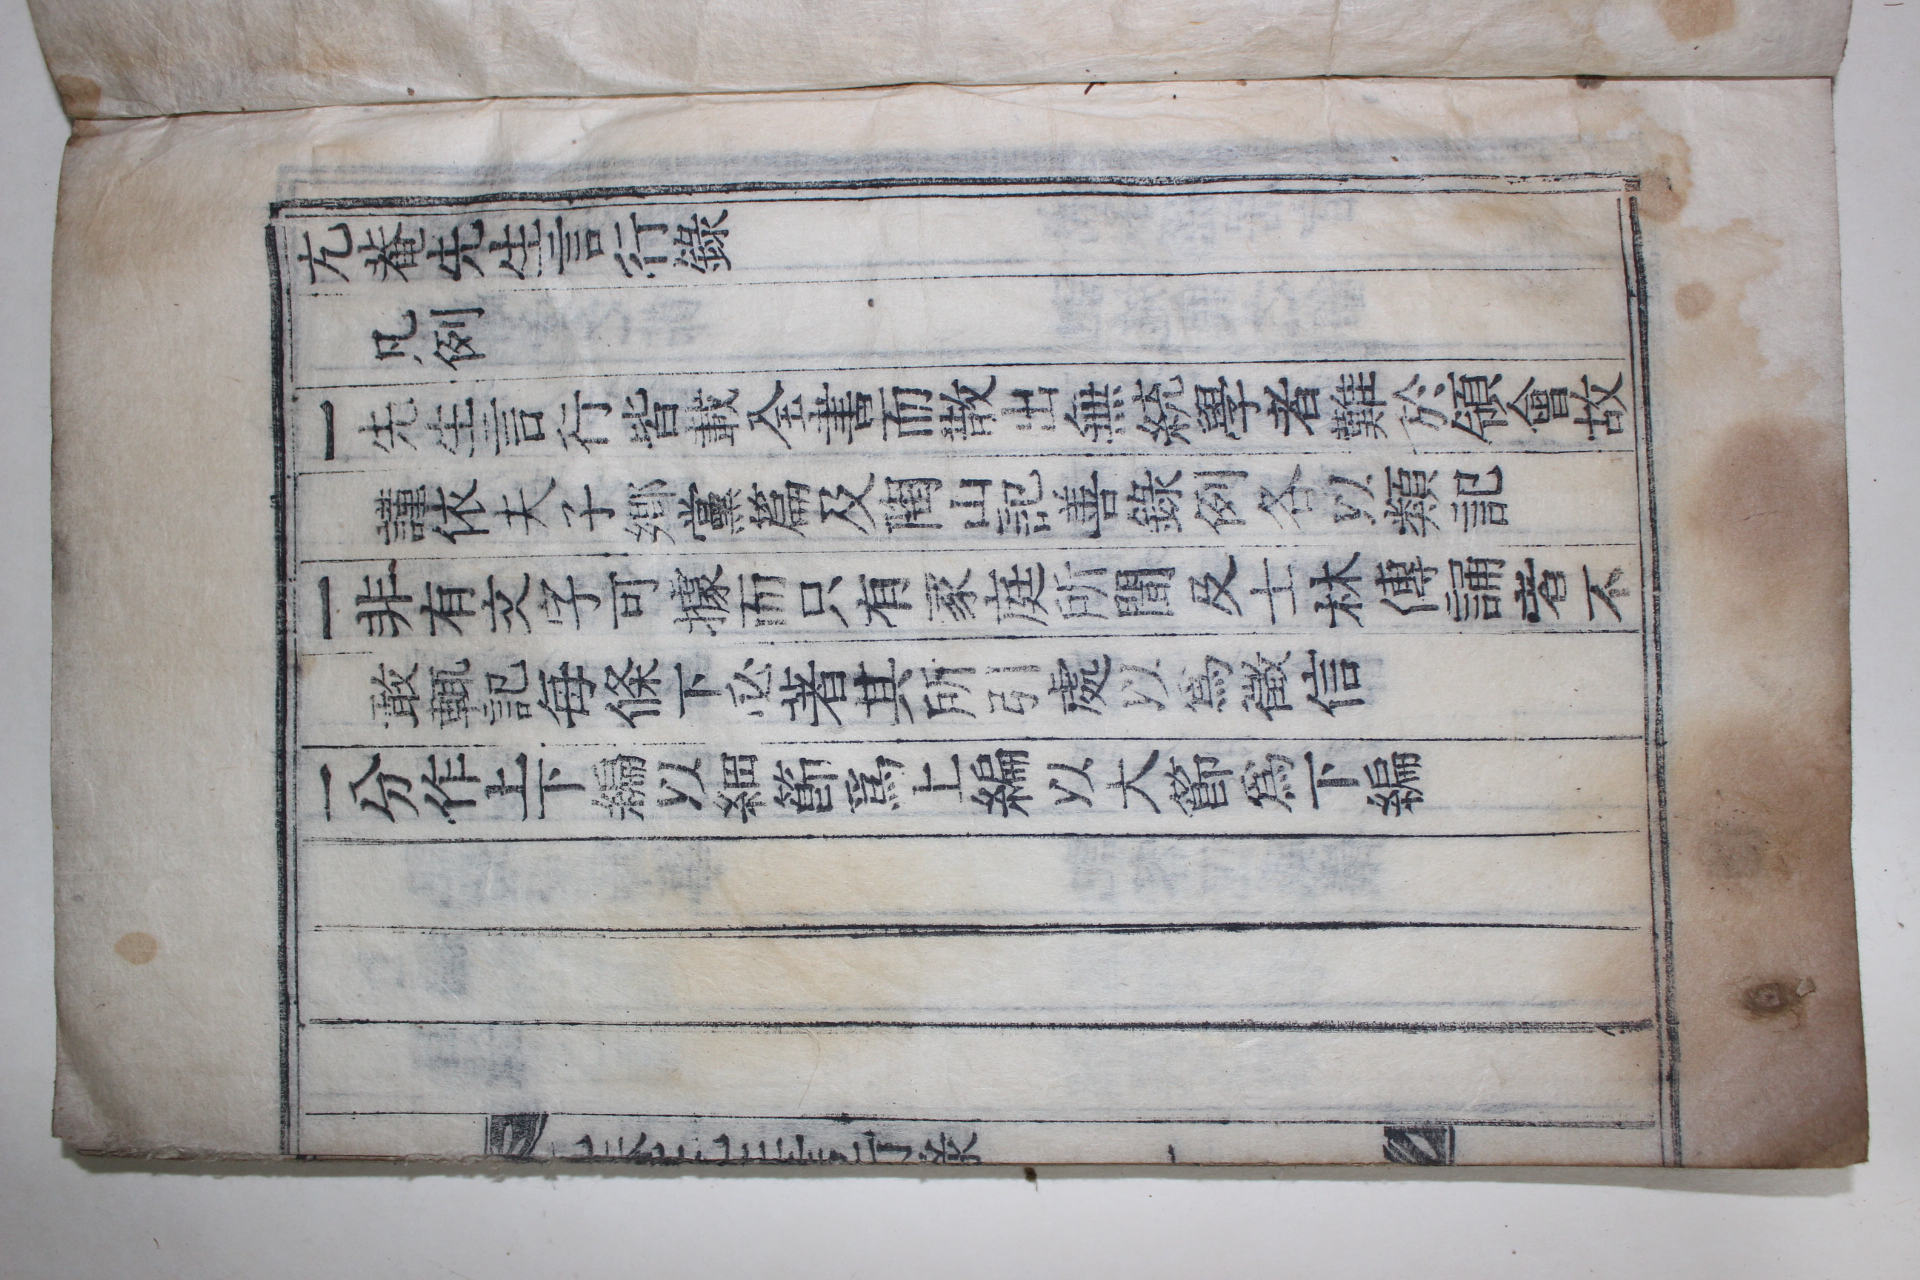 尤菴先生言行錄
凡例
一先生言行皆載全書而散出無統學者難於領會故
謹依夫子鄕黨篇及陶山記善錄例各以類記
一非有文字可據而只有家庭所聞及士林傳誦者不
敢輒記每條下必著其所引處以爲徵信
一分作上下編以細節爲上編以大節爲下編